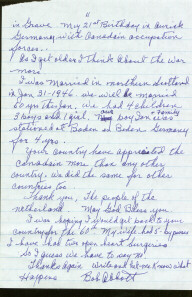 11
in Grave. My 21st Birthday in Aurich
Germany with Canadain occupation
forces.
As I get older I think about the war
more.
I was married in northern Scotland
in Jan 31-1946. We will be married
60 yrs this Jan. We had 4 children
3 boys and 1 girl. Our boy Jon was
stationed at Baden on Baden Germany
for 4 yrs.
Your country have appreciated the
Canadain more than any other
country. We did the same for other
countries too.
Thank you, The people of the
netherland May God Bless you
I was hoping I would get back to your
country for the 60th. My wife had bypass
I have had two open heart surgeries
So I guess we have to say no!
Thanks again. Write and let me know what
Happens Bob